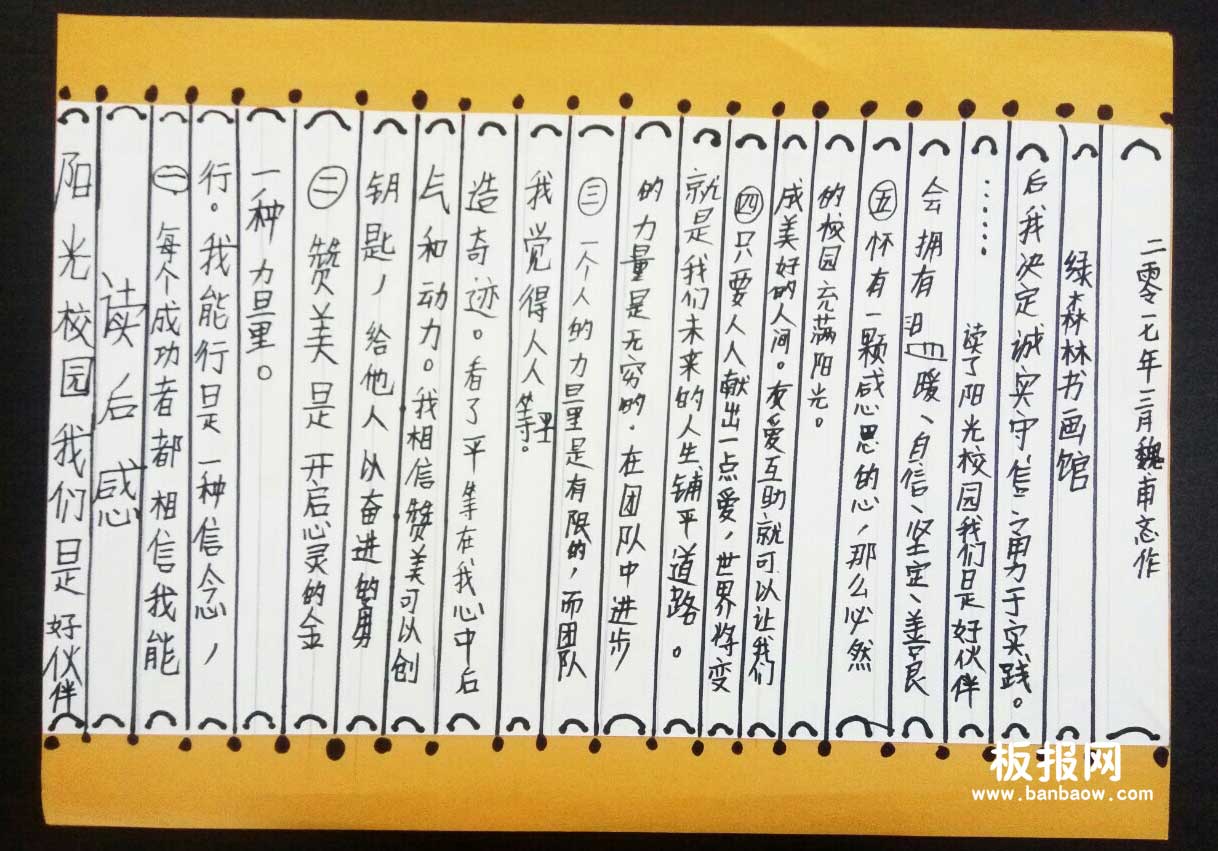 阳光校园我们是好伙伴
读后感
㊀每个成功者都相信我能
行。我能行是一种信念,
一种力量。
㊁赞美是开启心灵的金
钥匙,给他人以奋进的勇
气和动力。我相信赞美可以创
造奇迹。看了平等在我心中后
我觉得人人等平。
㊂一个人的力量是有限的,而团队
的力量是无穷的.在团队中进步
就是我们未来的人生铺平道路。
㊃只要人人献出一点爱,世界将变
成美好的人间。友爱互助就可以让我们
的校园充满阳光。
㊄怀有一颗感思的心,那么必然
会拥有温暖、自信、坚定、善良
……读了阳光校园我们是好伙伴
后我决定诚实守信勇力于实践。
绿森林书画馆
二零一七年三月魏作
板报网
www.banbaow.com